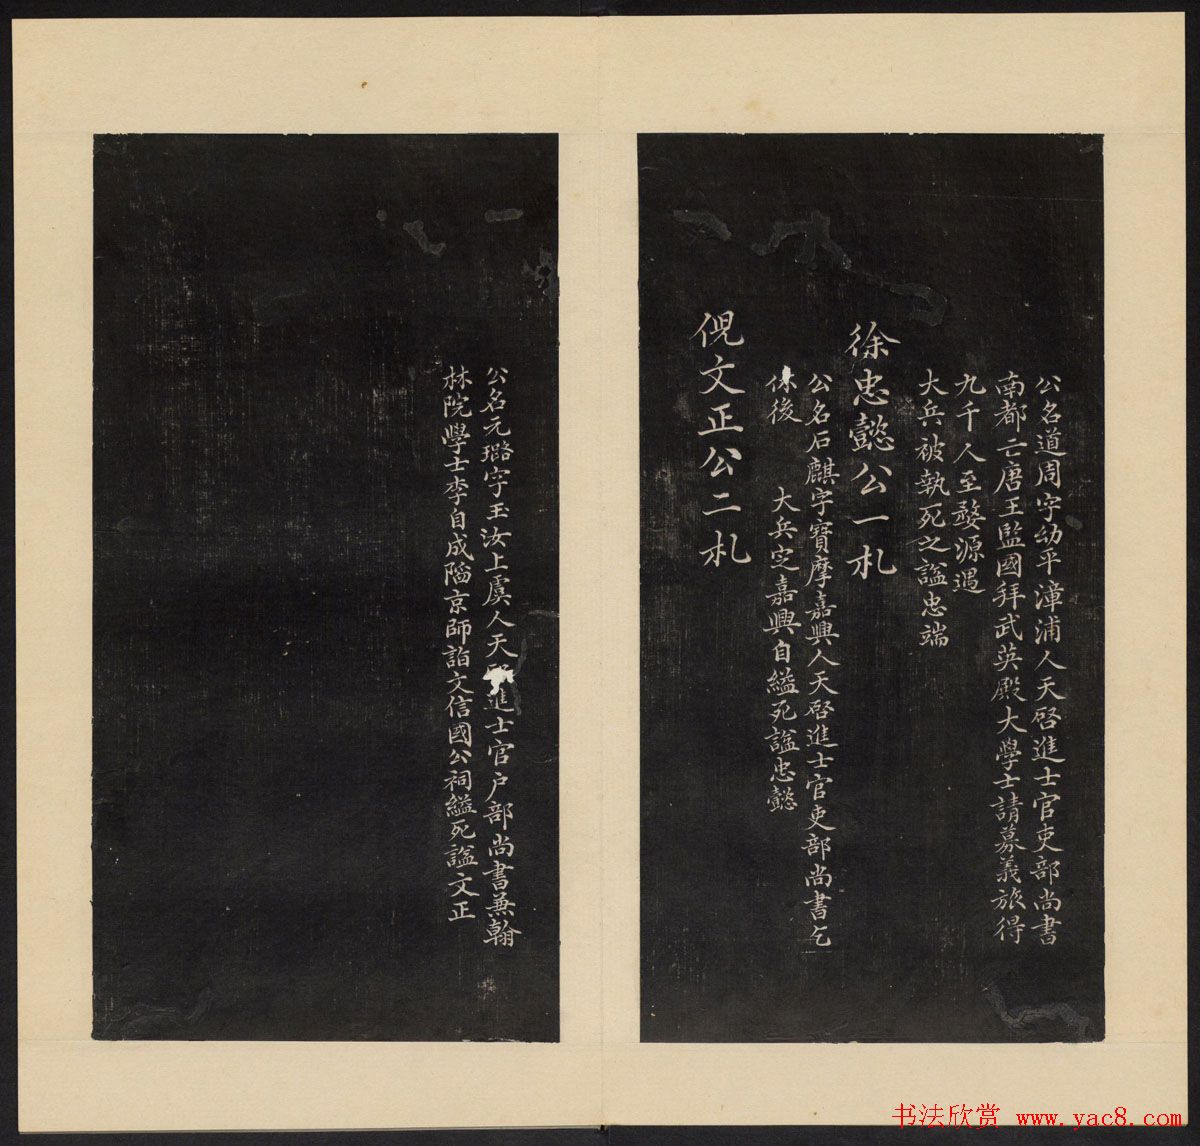 公名道周字幼平漳浦人天啓進士官吏部尚書
南都亡唐王監國拜武英殿大學士請募義旅得
九千人至婺源遇
大兵被執死之謚忠端
徐忠懿公一札
公名石麒字寶摩嘉興人天啓進士官吏部尚書乞
休後　　大兵定嘉興自縊死謚忠懿
倪文正公二札
公名元璐字玉汝上虞人天進士官户部尚書兼翰
林院學士李自成陷京師詣文信國公祠縊死謚文正
书法欣赏 www.yac8.com